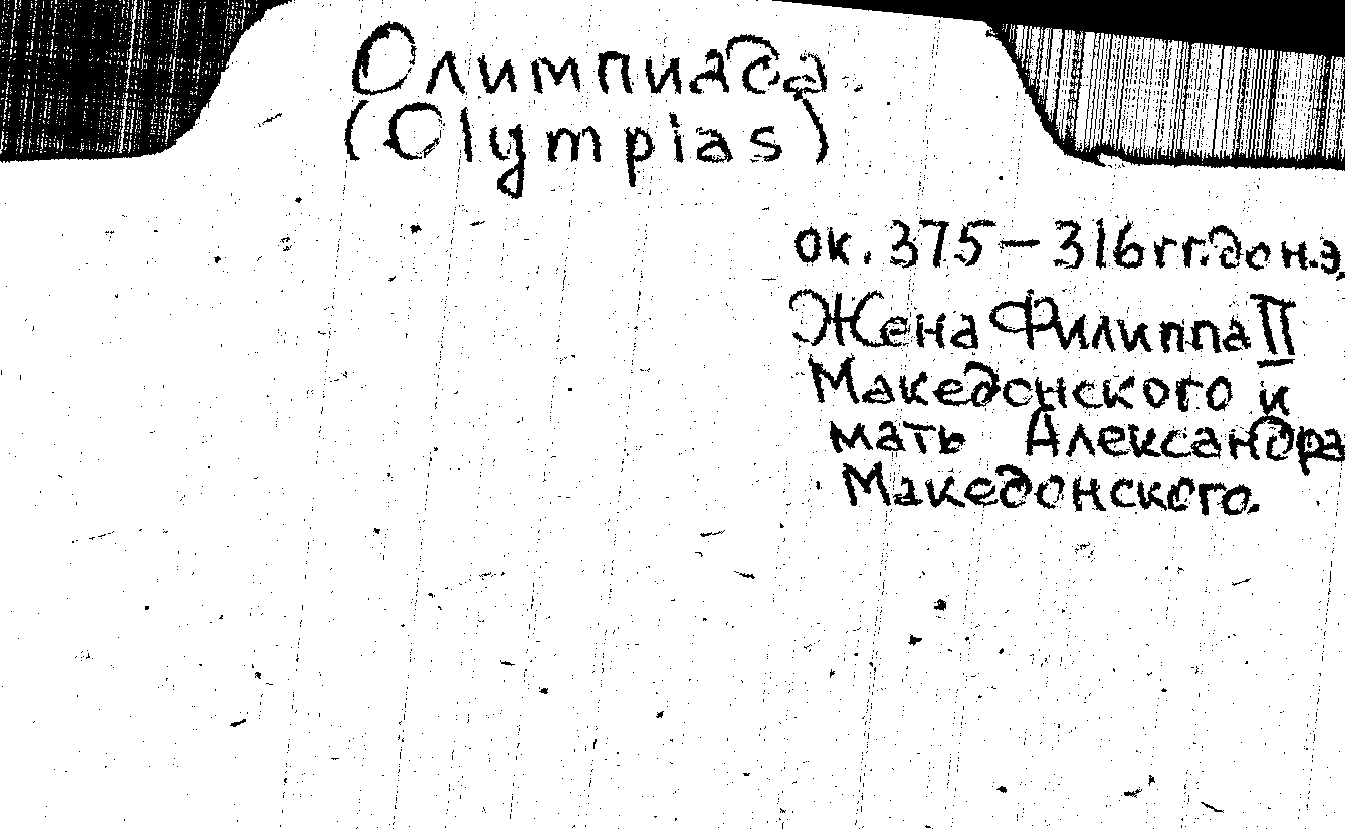 Олимпиада
(Olympias)
ок. 375 – 316 гг. до н.э.
Жена Филиппа II
Македонского и
мать Александра
Македонского.